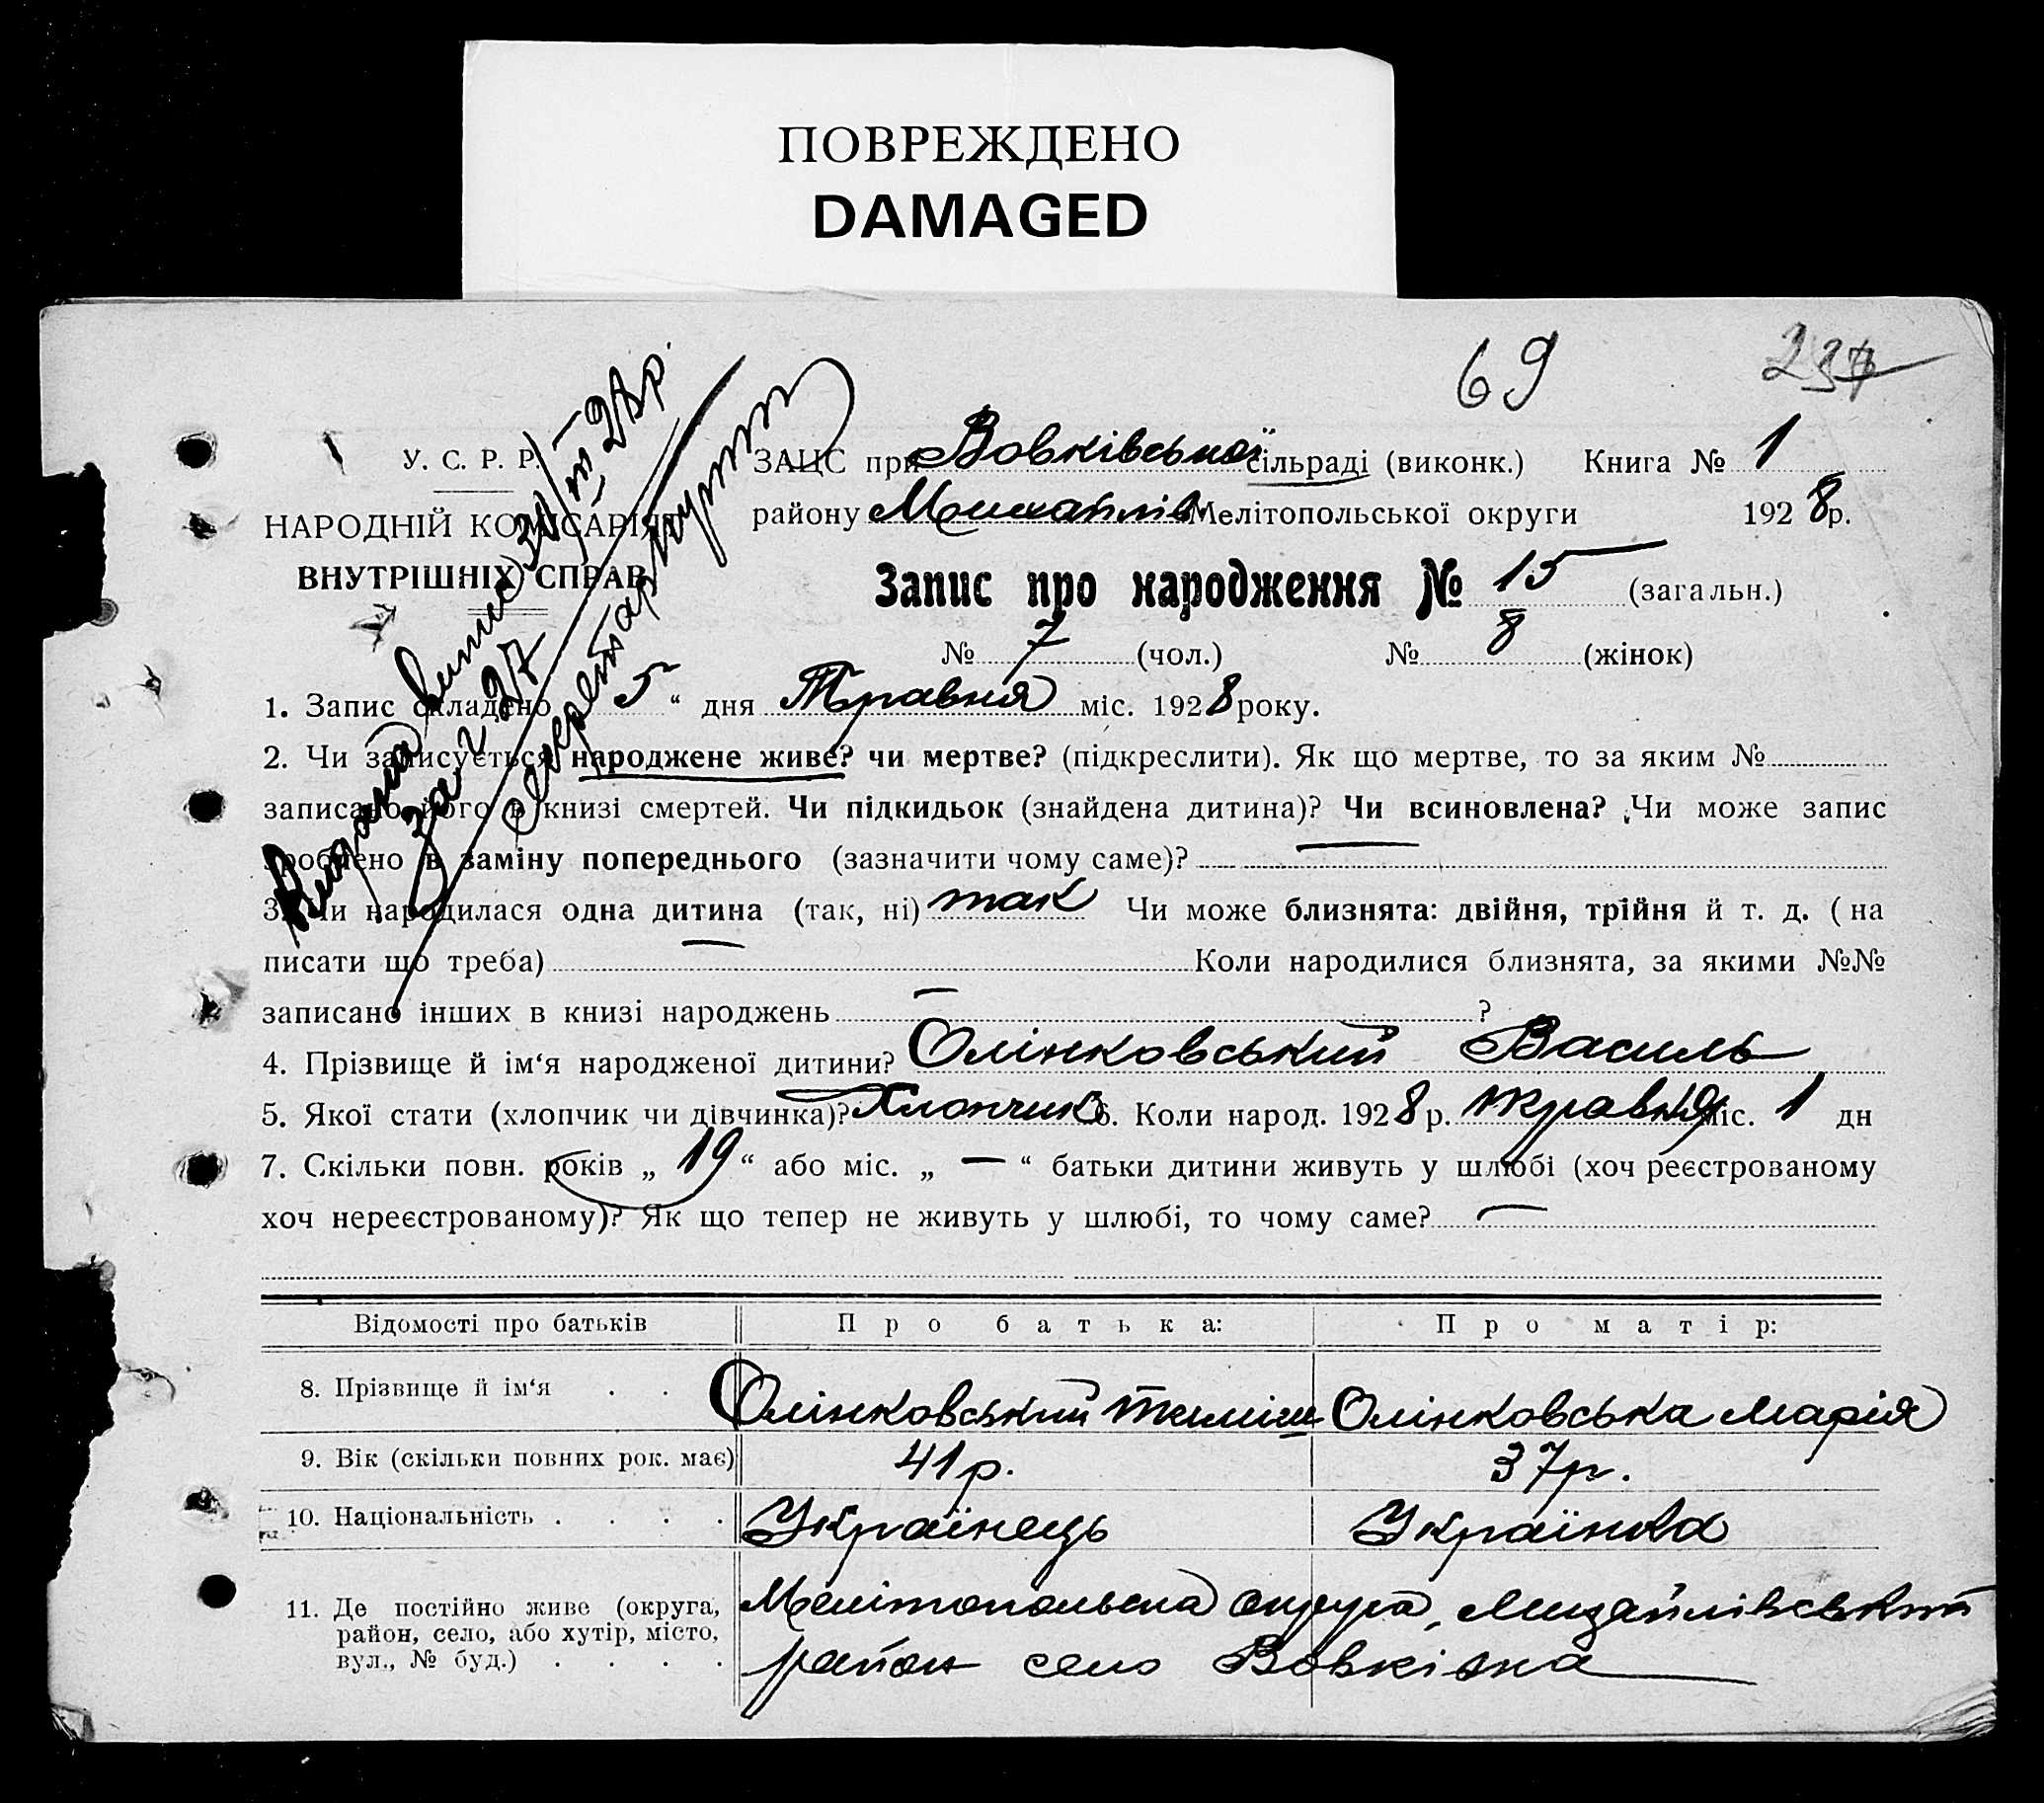 ПОВРЕЖДЕНО
DAMAGED
69
237
У. С. Р. Р.
НАРОДНІЙ КОМІСАРІЯТ
ВНУТРІШНІХ СПРАВ
ЗАЦС при Вовківської сільраді (виконк.) Книга № 1
району Михайлів Мелітопольської округи 1928р.
Запис про народження № 15 (загальн.)
№ 7 (чол.) № 8 (жінок)
1. Запис складено 5 “ дня Травня міс. 1928 року.
2. Чи записується народжене живе? чи мертве? (підкреслити). Як що мертве, то за яким №
записано його в книзі смертей. Чи підкидьок (знайдена дитина)? Чи всиновлена? Чи може запис
зроблено в заміну попереднього (зазначити чому саме)?
3. Чи народилася одна дитина (так, ні) так Чи може близнята: двійня, трійня й т. д. (на
писати що треба) Коли народилися близнята, за якими №№
записано інших в книзі народжень ?
4. Прізвище й ім‘я народженої дитини? Олінковський Василь
5. Якої стати (хлопчик чи дівчинка)? Хлопчик 6. Коли народ. 1928 р. травня міс. 1 дн
7. Скільки повн. років „ 19 “ або міс. „ — “ батьки дитини живуть у шлюбі (хоч реєстрованому
хоч нереєстрованому)? Як що тепер не живуть у шлюбі, то чому саме? —
Відомості про батьків Про батька: Про матір:
8. Прізвище й ім‘я . . Олінковський Олінковська Марія
9. Вік (скільки повних рок. має) 41 р. 37 р.
10. Національність . . . . Українець Українка
11. Де постійно живе (округа, район, село, або хутір, місто, вул., № буд.) . . . . Мелітопольська округа, Михайлівський
район село Вовківка
Видана Випис
за № 27
секретар